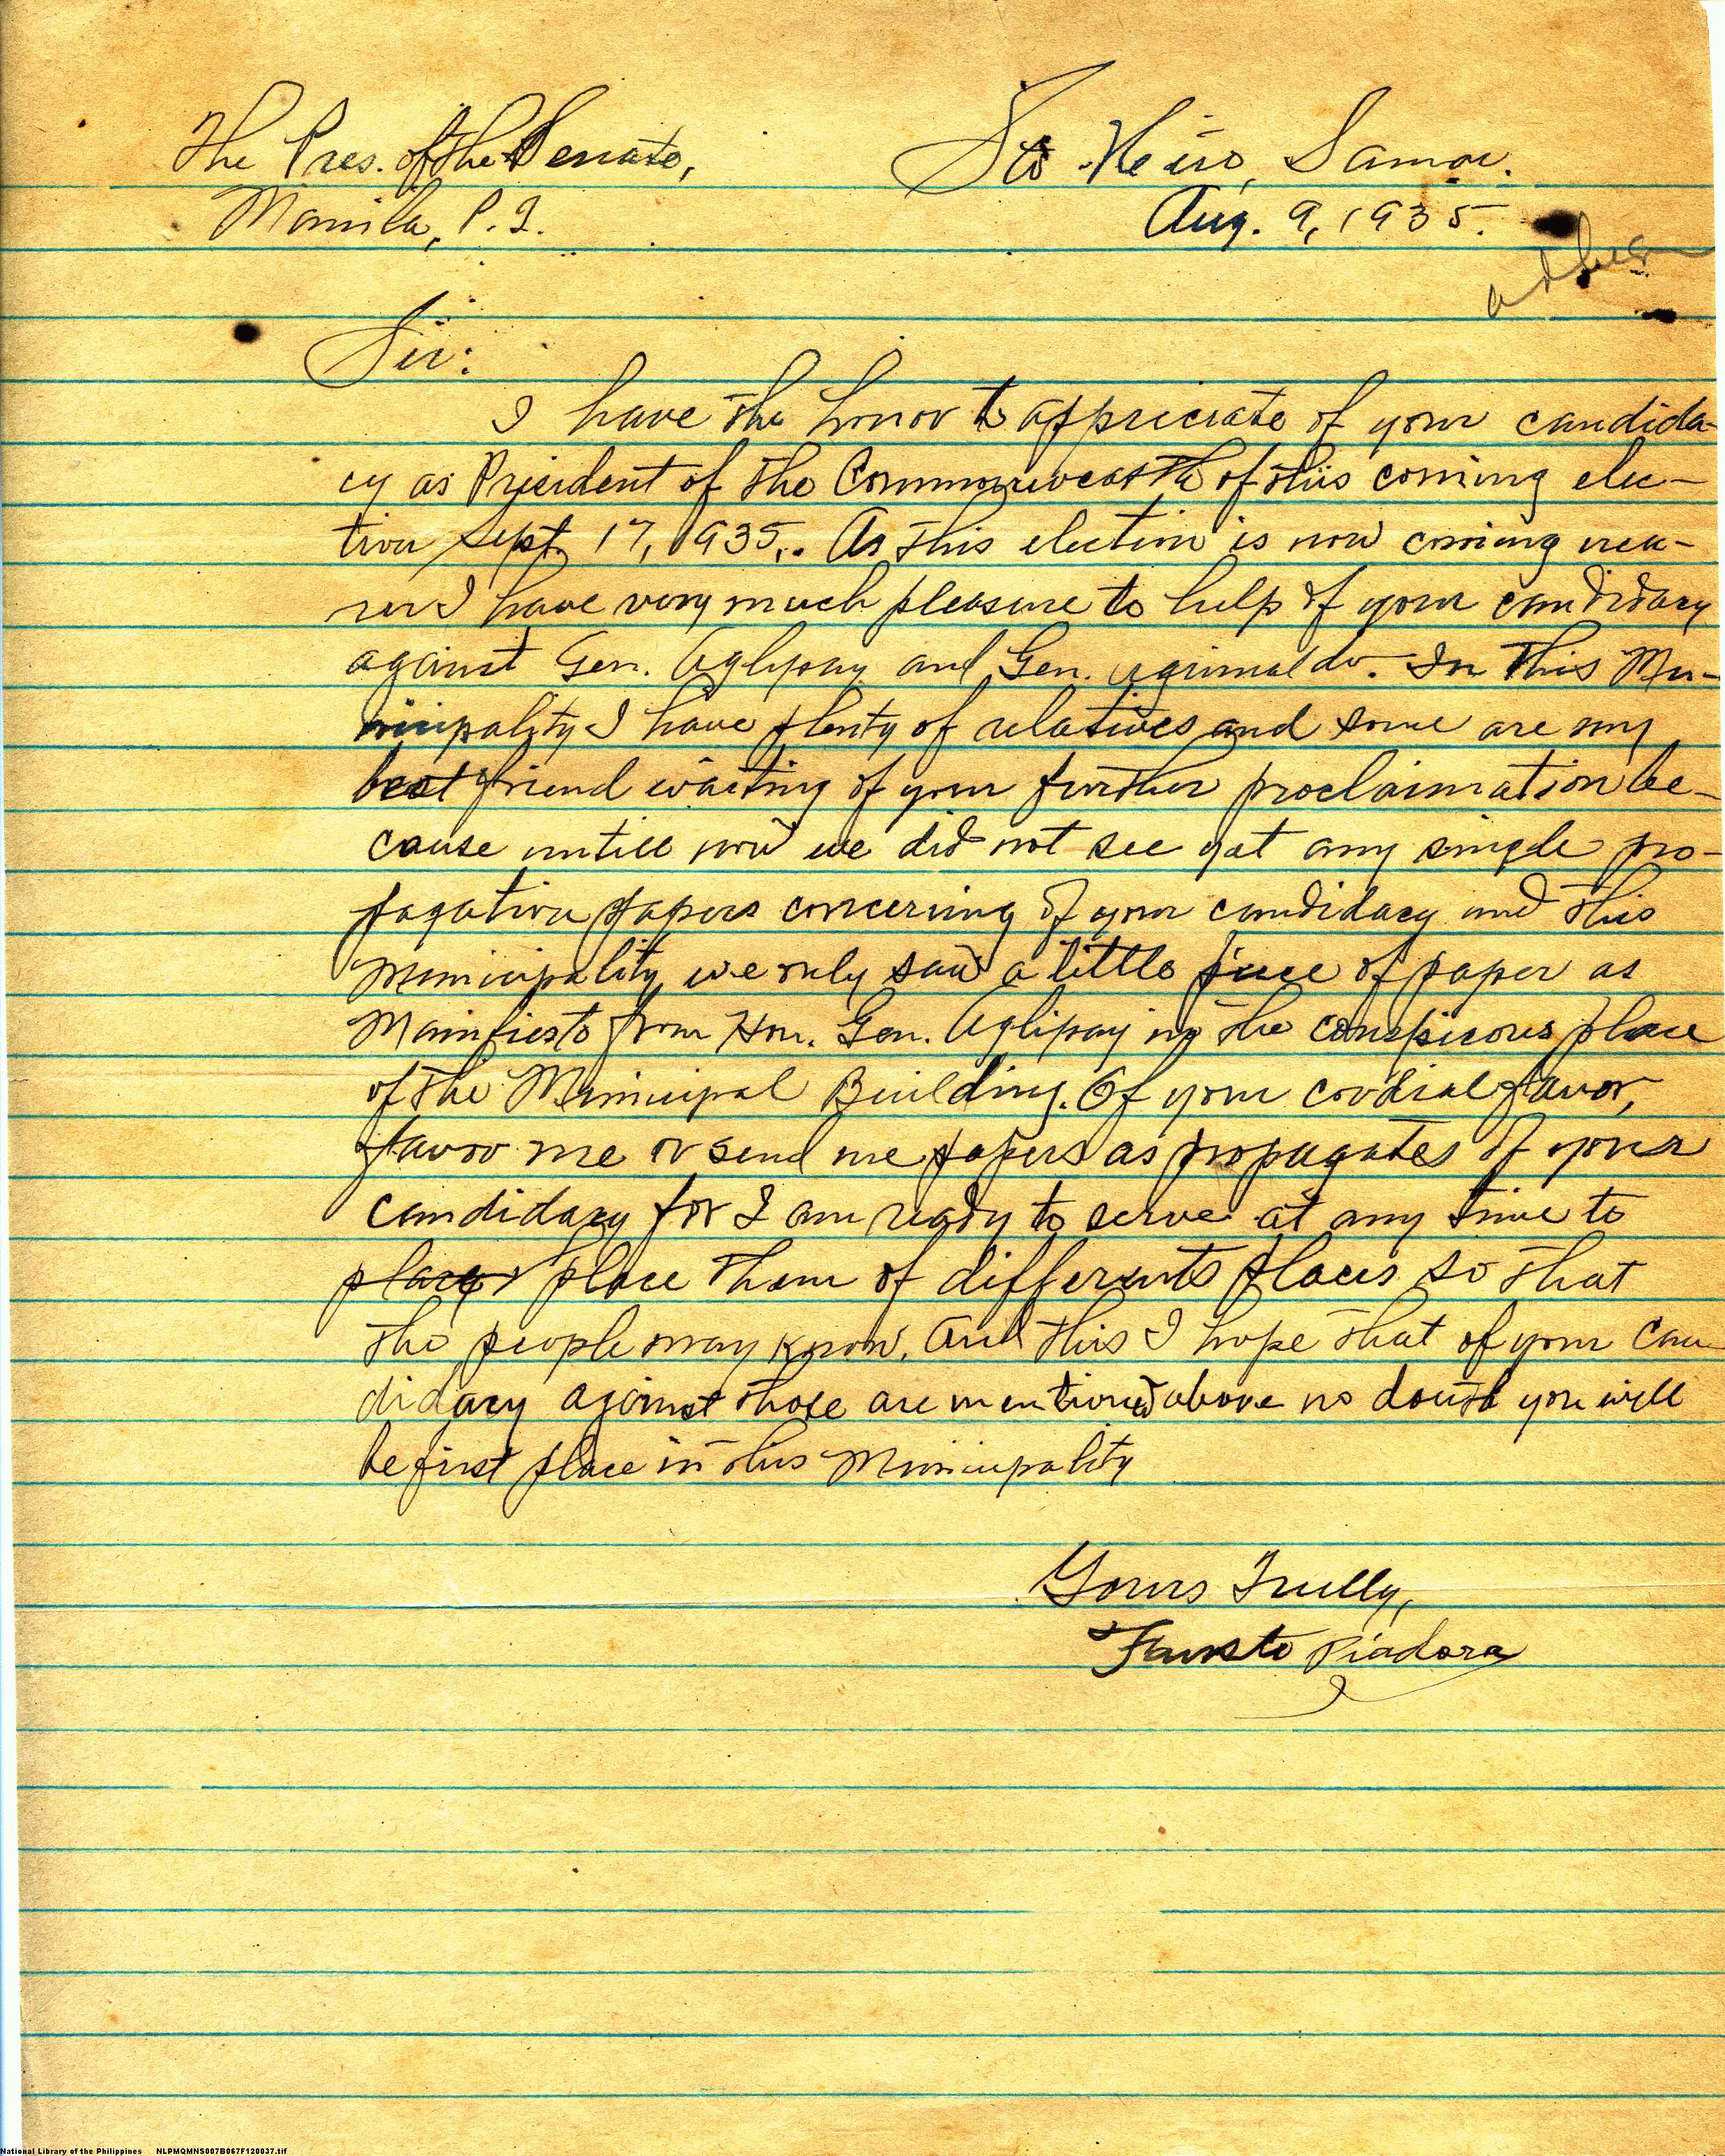 The Pres. of the Senate,
Manila, P. I.
Sto Niño, Samar.
Aug. 9, 1935.
Sir:
I have the honor to appreciate of your candida-
cy as President of the Commonwealth of this coming elec-
tion Sept. 17, 1935.. As this election is now coming nea-
rer I have very much pleasure to help of your candidacy
against Gen. Aglipay and Gen. Aguinaldo. In this Mu-
nicipality I have plenty of relatives and some are my
best friend waiting of your further proclaimation be-
cause untill now we did not see yat any single pro-
pagation papers concerning of your candidacy and this
Municipality, we only saw a little piece of paper as
Mainfiesto from Hon. Gen. Aglipay in the conspicous place
of the Municipal Building. Of your cordial favor,
favor me or send me papers as propagates of your
candidacy for I am ready to serve at any time to
place place them of differents places so that
the people may know. And this I hope that of your can
didacy against those are mentioned above no doubt you will
be first place in this Municipality
Yours Trully,
Fausto Piadora
National Library of the Philippines NLPMQMNS007B067F120037.tif